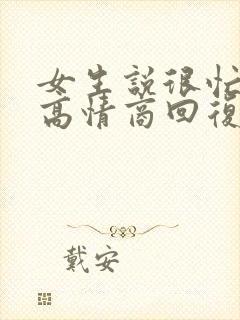 女生説很忙
高情商回復
戴安